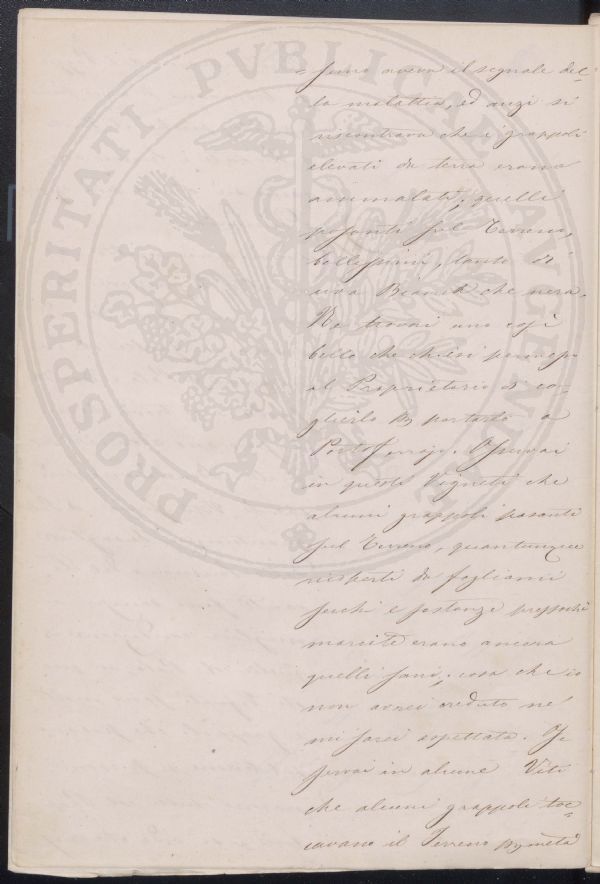 PROSPERITATI PVBLICAE AVGENDAE
=suno aveva il segnale del=
la malattia, ed anzi si
riscontrava che i grappoli
elevati da terra erano
ammalati, quelli
posanti sul Terreno,
bellissimi, tanto di
uva Bianca che nera.
Ne trovai uno così
bello che chiesi permesso
al Proprietario di co=
glierlo per portarlo a
Portoferrajo. Osservai
in questi Vigneti che
alcuni grappoli posanti
sul Terreno, quantunque
coperti da fogliami
secchi e sostanze pressochè
marcite erano ancora
quelli sani, cosa che io
non avrei creduto nè
mi sarei sospettata. Os
servai in alcune Viti
che alcuni grappoli toc=
cavano il Terreno per metà